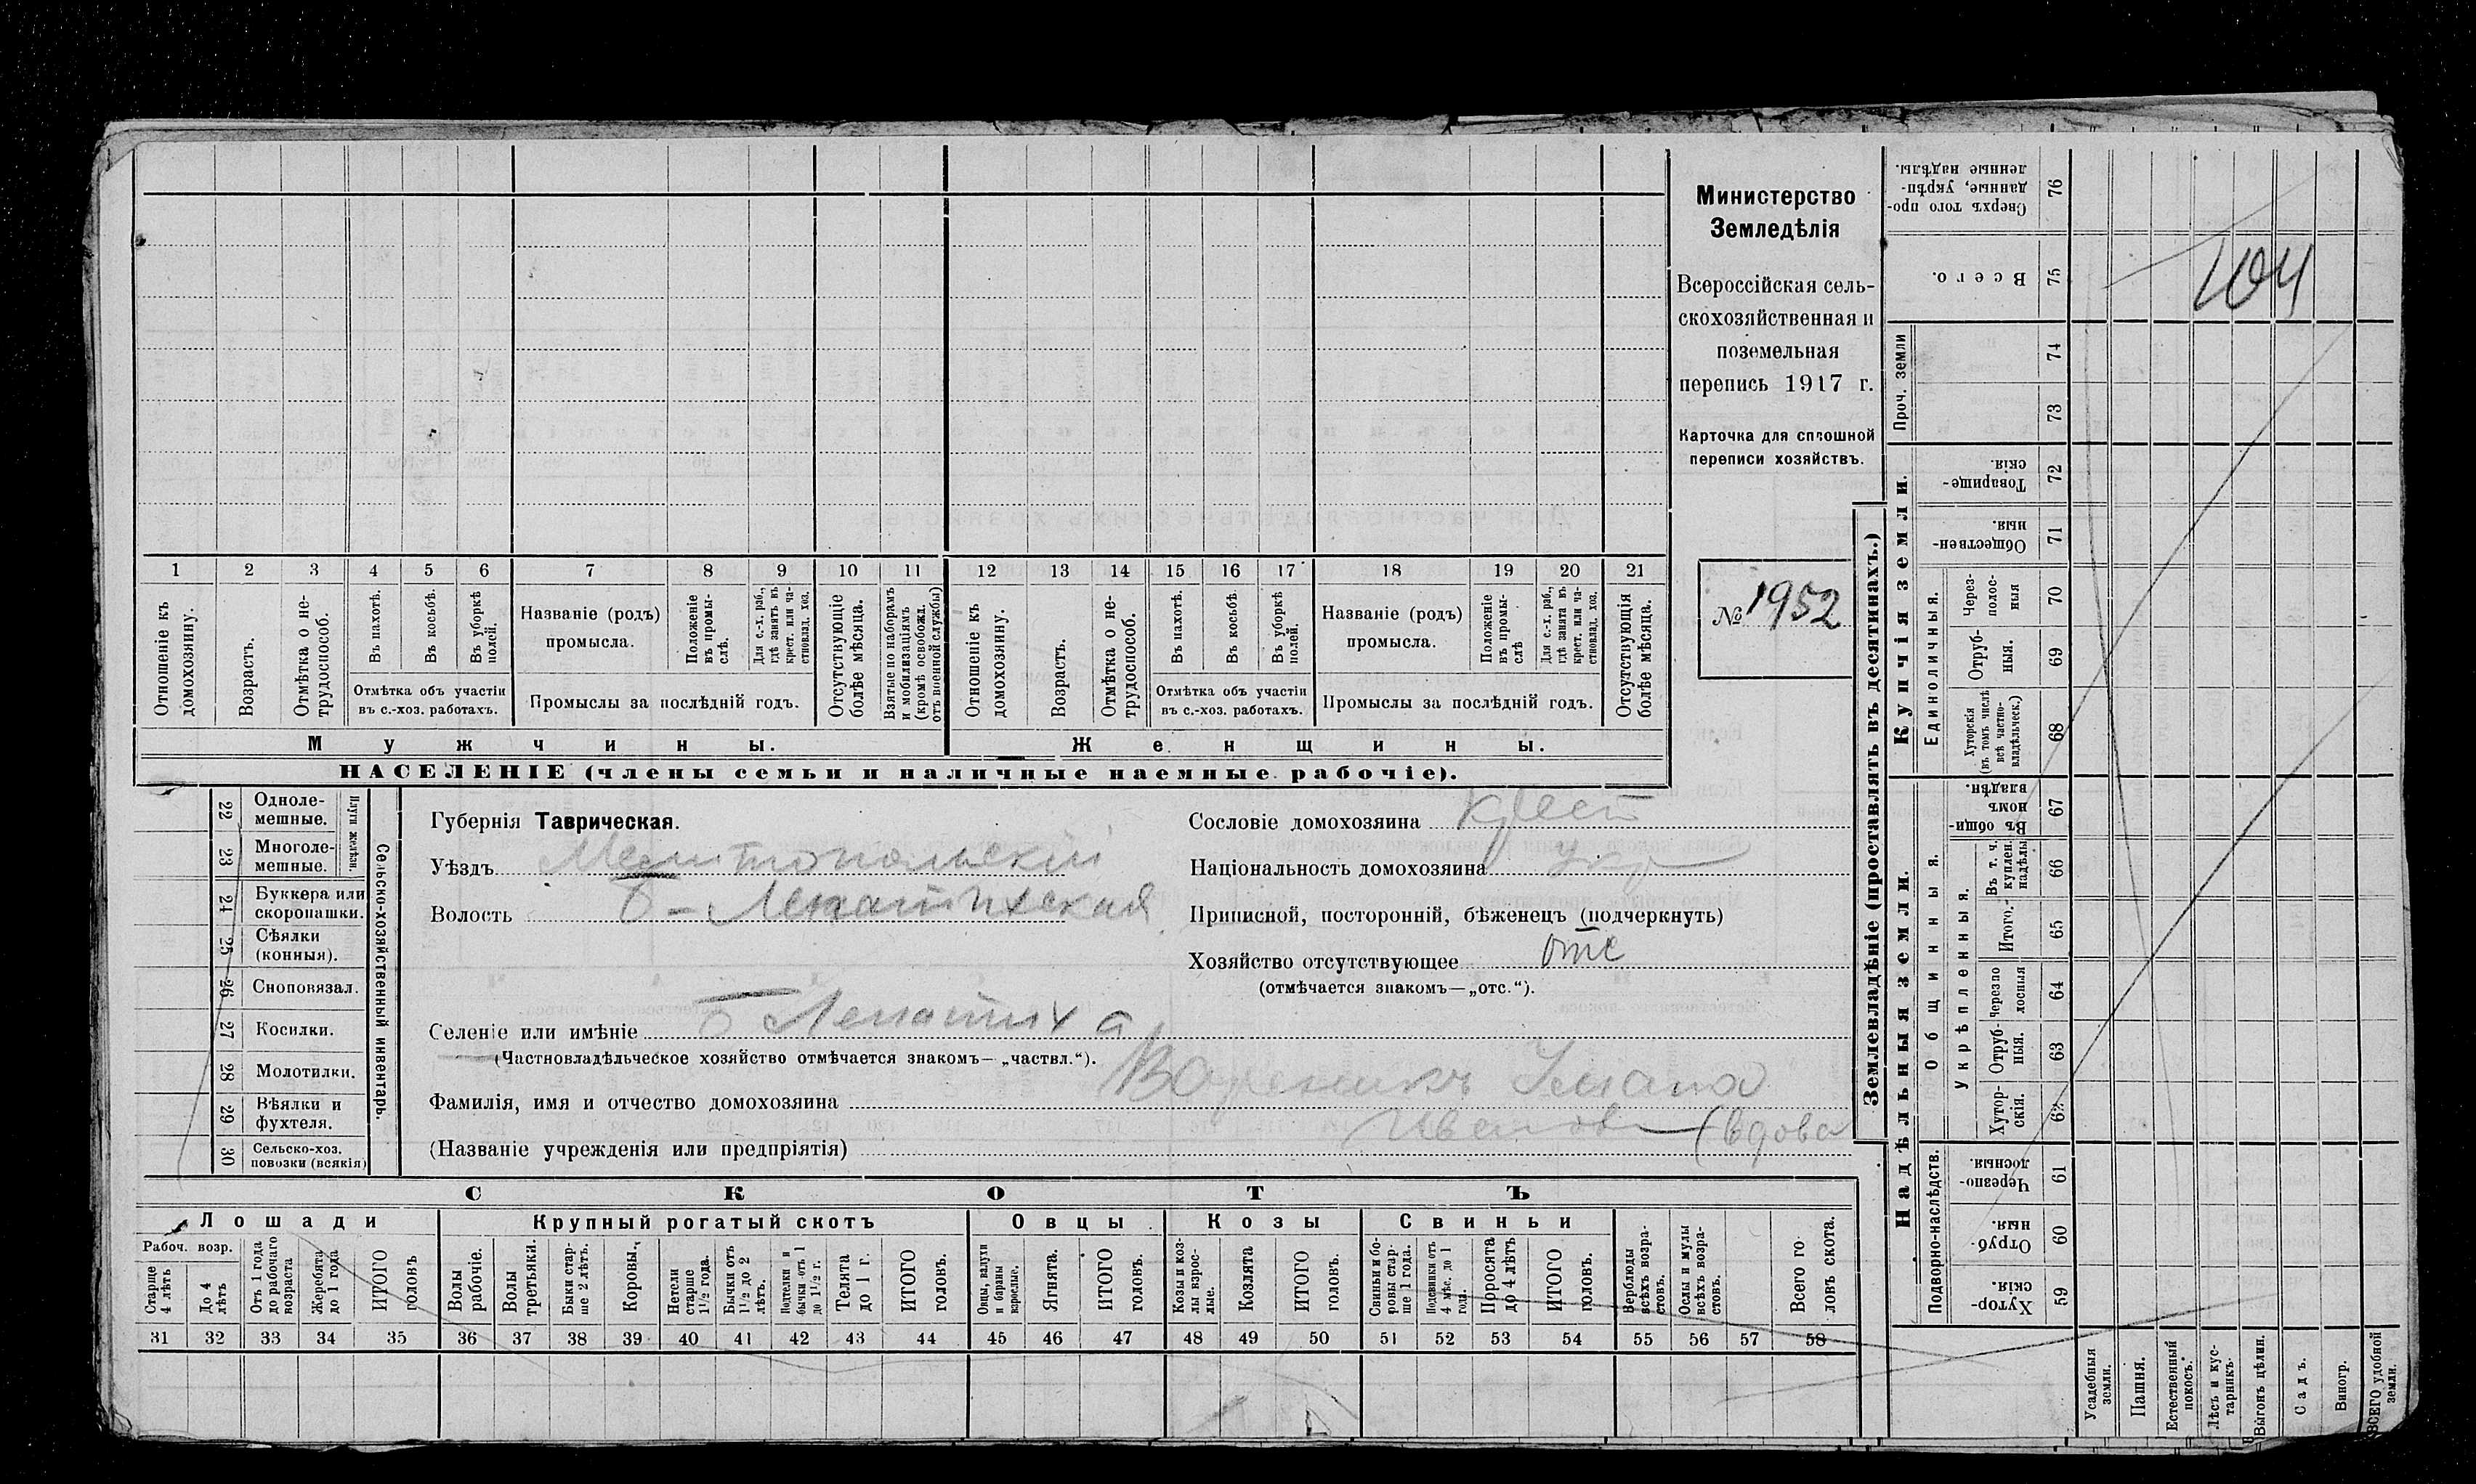 Министерство
Земледѣлія
Всероссійская сель-
скохозяйственная и
поземельная
перепись 1917 г.
Карточка для сплошной
переписи хозяйствъ.
№ 1952
1 2 3 4 5 6 7 8 9 10 11 12 13 14 15 16 17 18 19 20 21
Отношеніе къ домохозяину.
Возрастъ.
Отмѣтка о не-трудоспособ.
Въ пахотѣ.
Въ косьбѣ.
Въ уборкѣ полей.
Отмѣтка объ участіи
въ с.-хоз. работахъ.
Названіе (родъ)
промысла.
Положеніе въ промы-слѣ.
Для с.-х. раб., гдѣ занятъ въ крест. или ча-стновлад. хоз.
Промыслы за послѣдній годъ.
Отсутствующіе болѣе мѣсяца.
Взятые по наборамъ и мобилизаціямъ (кромѣ освобожд. отъ военной службы)
Отношеніе къ домохозяину.
Возрастъ.
Отмѣтка о не-трудоспособ.
Въ пахотѣ.
Въ косьбѣ.
Въ уборкѣ полей.
Отмѣтка объ участіи
въ с.-хоз. работахъ.
Названіе (родъ)
промысла.
Положеніе въ промы-слѣ
Для с.-х. раб., гдѣ занята въ крест. или ча-стновлад. хоз.
Промыслы за послѣдній годъ.
Отсутствующія болѣе мѣсяца.
Мужчины. Женщины.
НАСЕЛЕНІЕ (члены семьи и наличные наемные рабочіе).
22 Одноле-мешные.
23 Многоле-мешные.
Плуги желѣзн.
24 Буккера или скоропашки.
25 Сѣялки (конныя).
26 Сноповязал.
27 Косилки.
28 Молотилки.
29 Вѣялки и фухтеля.
30 Сельско-хоз. повозки (всякія)
Сельско-хозяйственный инвентарь.
Губернія Таврическая.
Уѣздъ Мелитопольскій
Волость Б-Лепатихская
Селеніе или имѣніе Б Лепатиха
(Частновладѣльческое хозяйство отмѣчается знакомъ—„частвл.“).
Фамилія, имя и отчество домохозяина Вареникъ
(Названіе учрежденія или предпріятія) (вдова
Сословіе домохозяина крест
Національность домохозяина Укр
Приписной, посторонній, бѣженецъ (подчеркнуть)
Хозяйство отсутствующее отс
(отмѣчается знакомъ—„отс.“).
СКОТЪ
Лошади Крупный рогатый скотъ Овцы Козы Свиньи
Рабоч. возр.
Старше 4 лѣтъ
До 4 лѣтъ
Отъ 1 года до рабочаго возраста
Жеребята до 1 года
ИТОГО головъ
Волы рабочіе.
Волы третьяки.
Быки стар-ше 2 лѣтъ.
Коровы.
Нетели старше 1½ года.
Бычки отъ 1½ до 2 лѣтъ.
Подтелки и бычки отъ 1 до 1½ г.
Телята до 1 г.
ИТОГО головъ.
Овцы, валухи и бараны взрослые.
Ягнята.
ИТОГО головъ.
Козы и коз-лы взрос-лые.
Козлята
ИТОГО головъ.
Свиньи и бо-ровы стар-ше 1 года.
Подсвинки отъ 4 мѣс. до 1 года.
Поросята до 4 лѣтъ
ИТОГО головъ.
Верблюды всѣхъ возра-стовъ.
Ослы и мулы всѣхъ возра-стовъ.
Всего го ловъ скота.
31 32 33 34 35 36 37 38 39 40 41 42 43 44 45 46 47 48 49 50 51 52 53 54 55 56 57 58
Землевладѣніе (проставлять въ десятинахъ.)
Надѣльныя земли. Купчія земли. Проч. земли
Подворно-наслѣдств.
Общинныя.
Укрѣпленныя.
Единоличныя.
Сверхъ того про-данные, укрѣп-ленные надѣлы. 76
Всего. 75
74
73
Товарище-скія. 72
Обществен-ныя. 71
Через-полос-ныя 70
Отруб-ныя. 69
Хуторскія (въ томъ числѣ всѣ частно-владѣльческ.) 68
Въ общи-номъ владѣн. 67
Въ т. ч. куплен. надѣлы 66
Итого. 65
Черезпо лосныя 64
Отруб-ныя. 63
Хутор-скія. 62
Черезпо-лосныя. 61
Отруб-ныя. 60
Хутор-скія. 59
Усадебныя земли.
Пашня.
Естественный покосъ.
Лѣсъ и кус-тарникъ.
Выгонъ цѣлин.
Садъ.
Виногр.
ВСЕГО удобной земли.
104